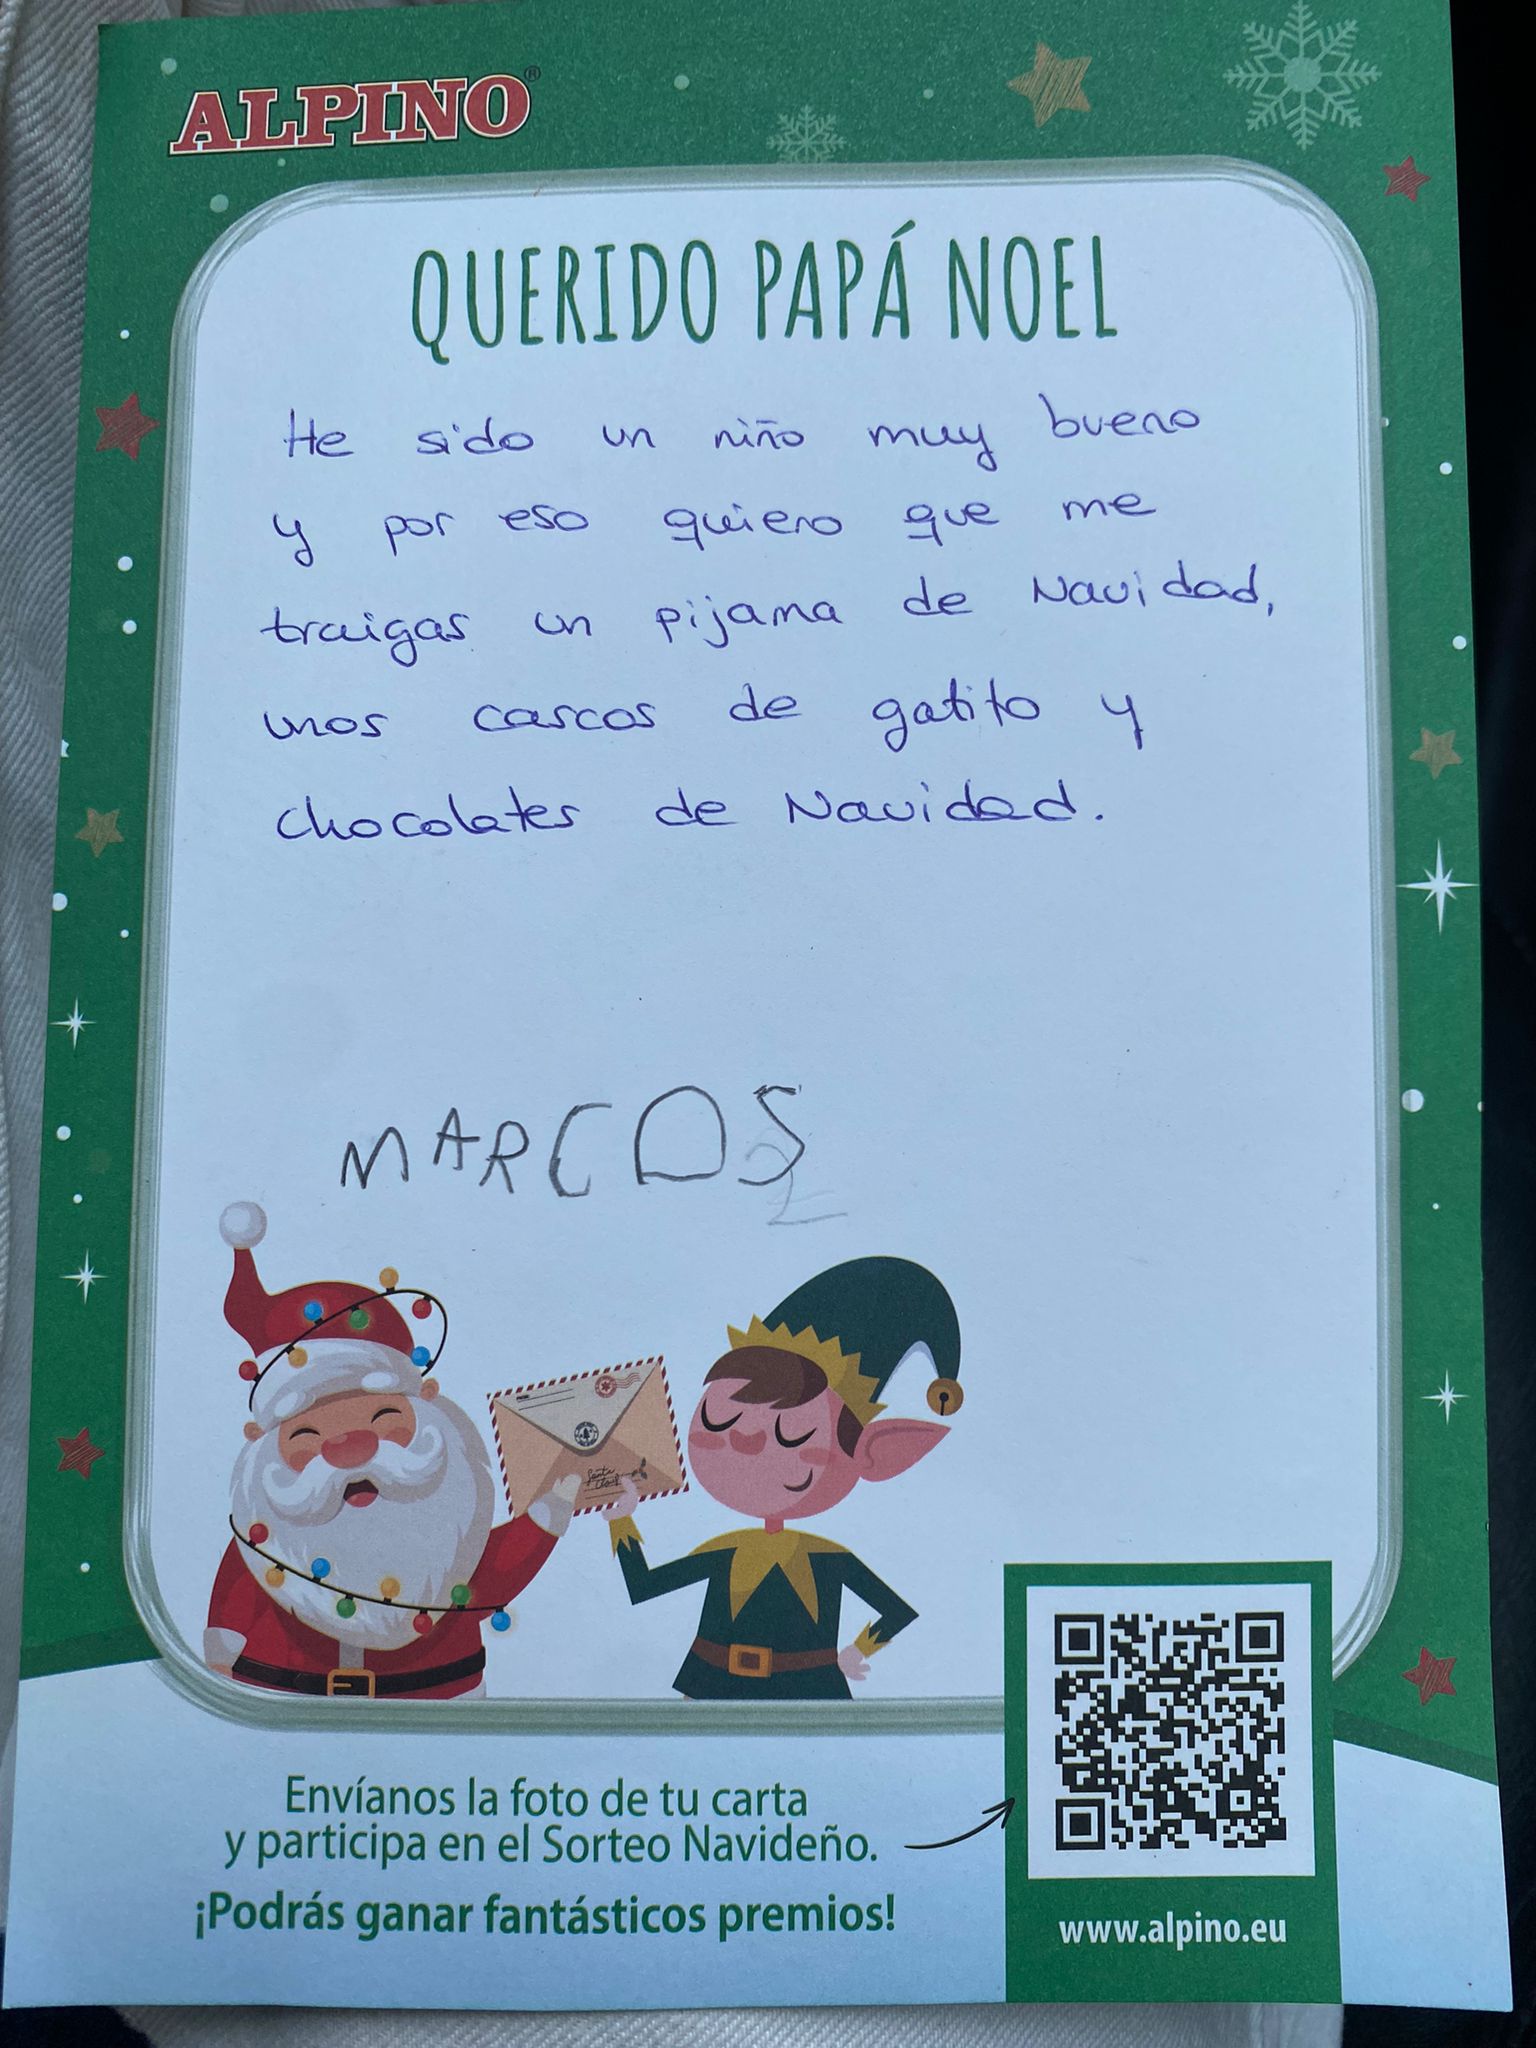 ALPINO®
QUERIDO PAPÁ NOEL
He sido un niño muy bueno
y por eso quiero que me
traigas un pijama de Navidad,
unos cascos de gatito y
chocolates de Navidad.
MARCOS
Santa
Claus
Envíanos la foto de tu carta
y participa en el Sorteo Navideño.
¡Podrás ganar fantásticos premios!
www.alpino.eu